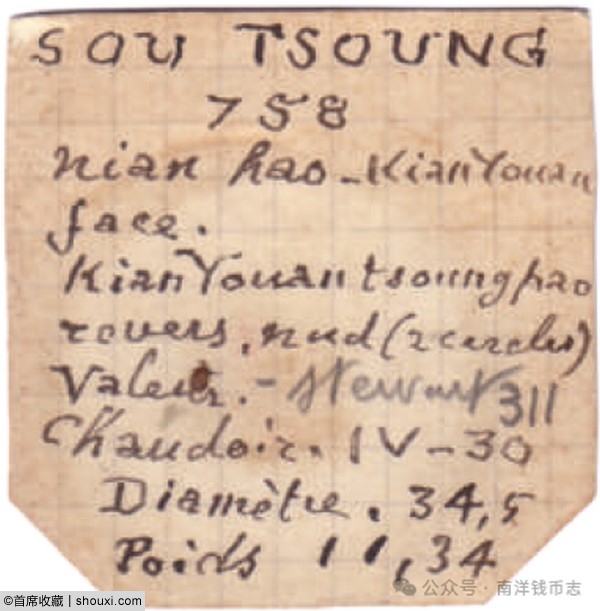 SOU TSOUNG
758
Nian hao - Kian Youan
face.
Kian Youan tsoung pao
revers, nud (2 cercles)
Valeur. - Stewart 311
Chaudoir. IV - 30
Diamètre. 34,5
Poids 11,34
公众号 · 南洋钱币志
@首席收藏 | shouxi.com